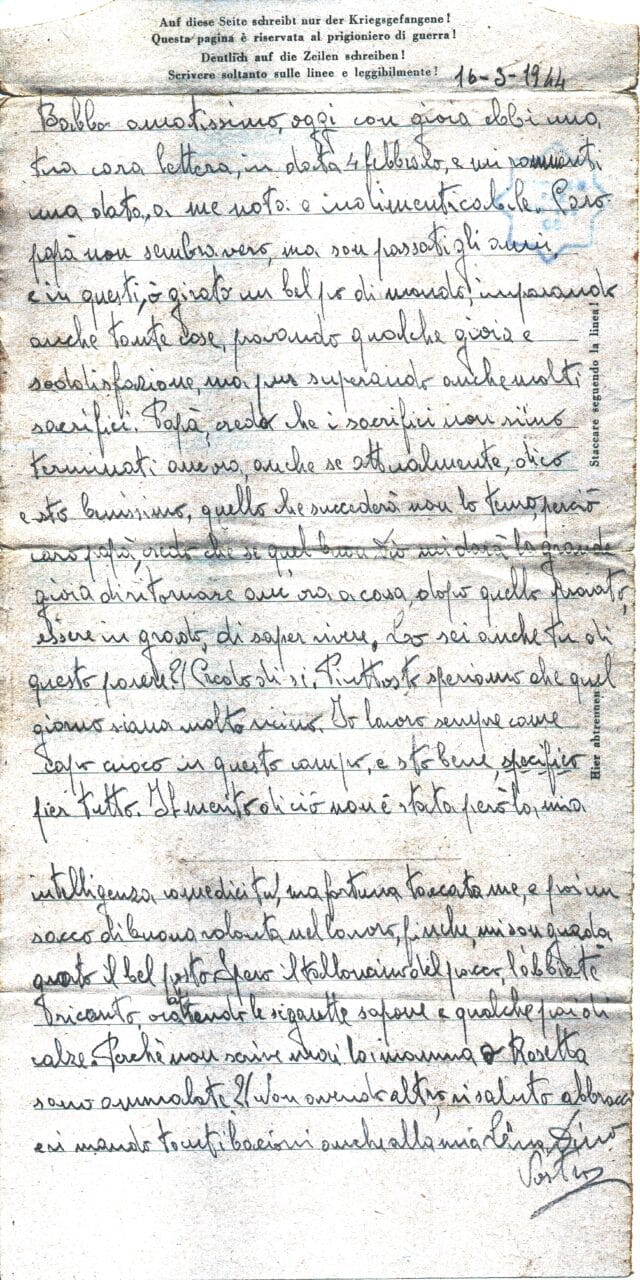 Auf diese Seite schreibt nur der Kriegsgefangene!
Questa pagina è riservata al prigioniero di guerra!
Deutlich auf die Zeilen schreiben!
Scrivere soltanto sulle linee e leggibilmente!
16-3-1944
Babbo amatissimo, oggi con gioia ebbi una
tua cara lettera, in data 4 febbraio, e mi rammenti
una data, a me nota e indimenticabile. Caro
papà non sembra vero, ma son passati gli anni,
e in questi, ò girato un bel po di mondo, imparando
anche tante cose, provando qualche gioia e
soddisfazione, ma pur superando anche molti
sacrifici. Papà, credo che i sacrifici non siino
terminati ancora, anche se attualmente, dico
e sto benissimo, quello che succederà non lo temo, perciò
caro papà, credo che se quel buon Dio mi darà la grande
gioia di ritornare ancora a casa, dopo quello provato,
essere in grado, di saper vivere. Lo sei anche tu di
questo parere?! Credo di si. Piuttosto speriamo che quel
giorno siana molto vicino. Io lavoro sempre come
capo cuoco in questo campo, e sto bene, specifico
per tutto. Il merito di ciò non è stata però la mia
intelligenza come dici tu, ma fortuna toccata me, e poi un
sacco di buona volontà nel lavoro, finche, mi son guada
gnato il bel posto. Spero il talloncino del pacco, l'abbiate
ricevuto, le sigarette sapone e qualche paio di
calze. Perchè non scrive mai la mamma o Rosetta
sono ammalate?! Non avendo altro, vi saluto abbracci
e vi mando tanti bacioni anche alla mia Dino
Vostro
Staccare seguendo la linea!
Hier abtrennen!